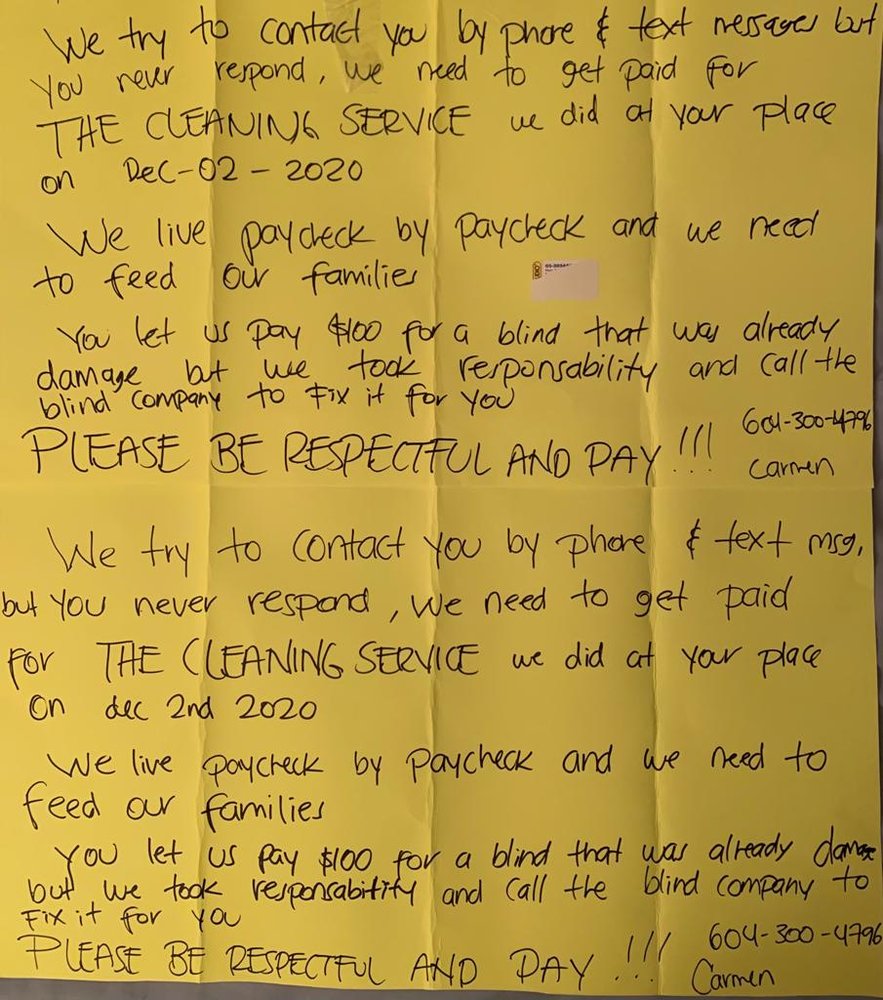 We try to contact you by phone & text messages but
You never respond, we need to get paid for
THE CLEANING SERVICE we did at your place
on Dec-02-2020
We live paycheck by paycheck and we need
to feed our families
You let us pay $100 for a blind that was already
damage but we took responsability and call the
blind company to Fix it for you
PLEASE BE RESPECTFUL AND PAY!!! 604-300-4796
Carmen
We try to contact you by phone & text msg,
but you never respond, we need to get paid
for THE CLEANING SERVICE we did at your place
on dec 2nd 2020
We live paycheck by paycheck and we need to
feed our families
You let us pay $100 for a blind that was already damage
but we took responsabitity and call the blind company to
Fix it for you
PLEASE BE RESPECTFUL AND PAY!!! 604-300-4796
Carmen